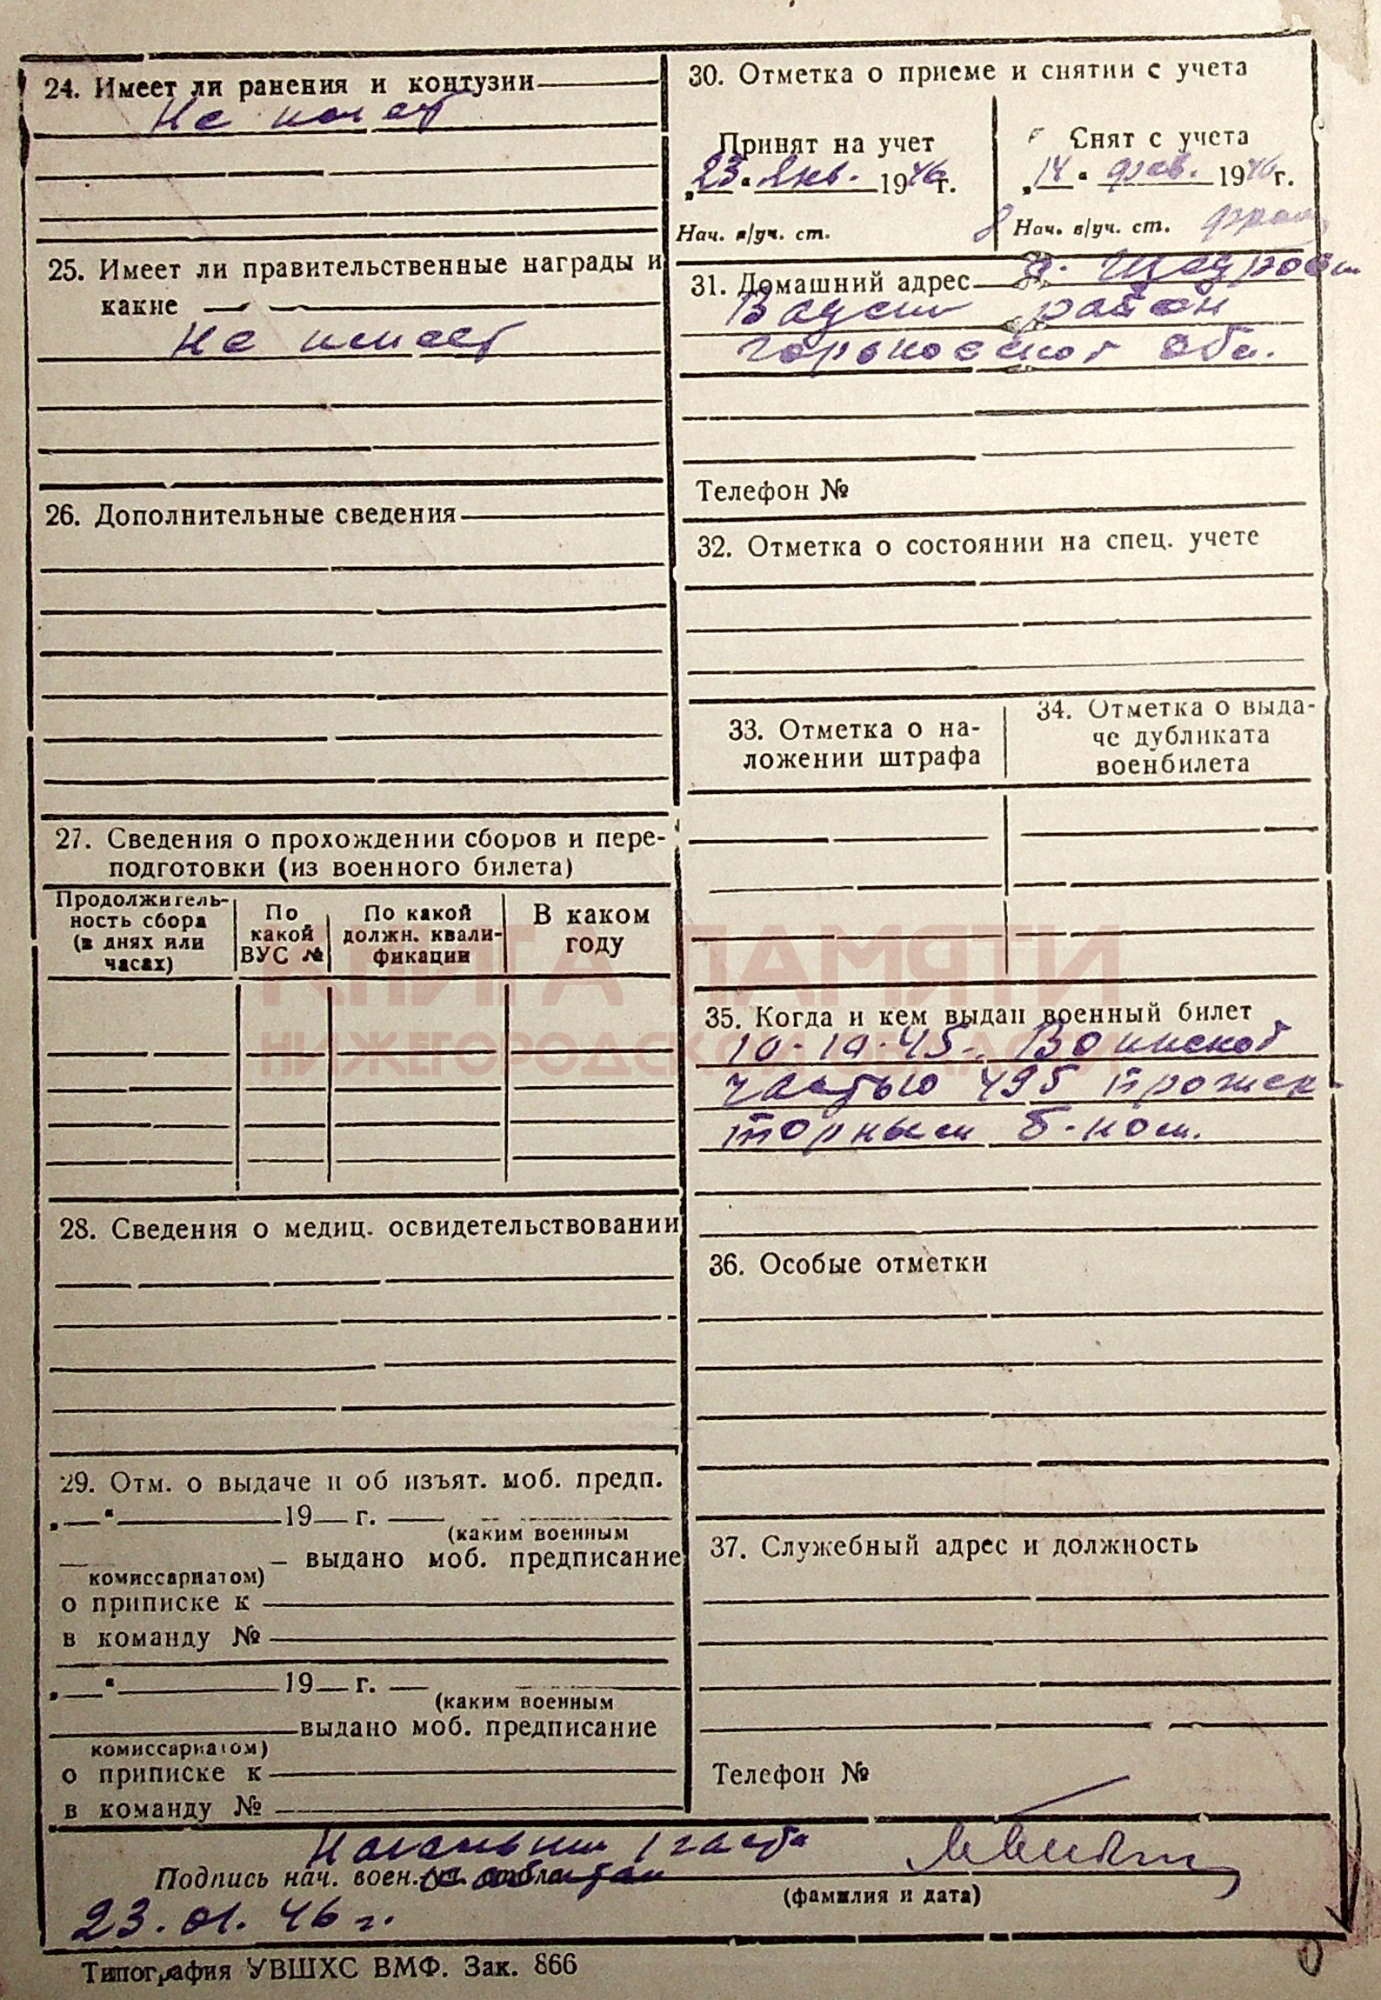 24. Имеет ли ранения и контузии
Не имеет
25. Имеет ли правительственные награды и
какие
Не имеет
26. Дополнительные сведения
27. Сведения о прохождении сборов и пере-
подготовки (из военного билета)
Продолжитель-
ность сбора
(в днях или
часах)
По
какой
ВУС №
По какой
должн. квали-
фикации
В каком
году
28. Сведения о медиц. освидетельствовании
29. Отм. о выдаче и об изъят. моб. предп.
„ “ 19 г.
(каким военным
выдано моб. предписание
комиссариатом)
о приписке к
в команду №
„ “ 19 г.
(каким военным
выдано моб. предписание
комиссариатом)
о приписке к
в команду №
30. Отметка о приеме и снятии с учета
Принят на учет
„23“ Янв. 1946г.
Нач. в/уч. ст.
Снят с учета
„14“ фев. 1946г.
Нач. в/уч. ст.
31. Домашний адрес
район
Горьковской обл.
Телефон №
32. Отметка о состоянии на спец. учете
33. Отметка о на-
ложении штрафа
34. Отметка о выда-
че дубликата
военбилета
КНИГА ПАМЯТИ
НИЖЕГОРОДСКОЙ ОБЛАСТИ
35. Когда и кем выдан военный билет
10.10.45 Воинской
частью 495 прожек-
торным б-ном.
36. Особые отметки
37. Служебный адрес и должность
Телефон №
Начальник 1 части
Подпись нач. воен.
(фамилия и дата)
23.01.46 г.
Типография УВШХС ВМФ. Зак. 866